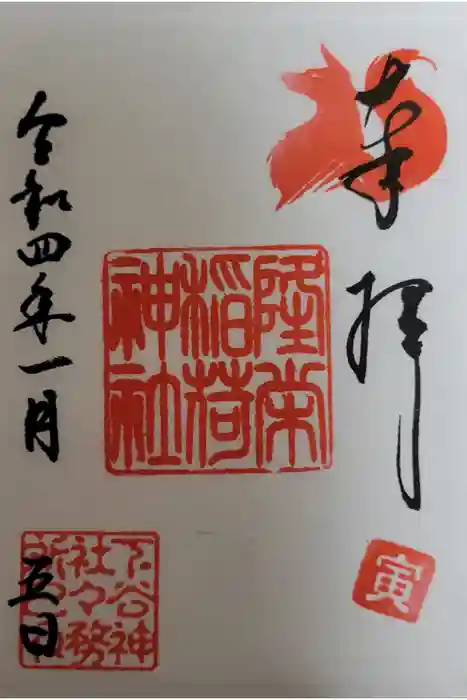 奉拝
寅
隆栄
稲荷
神社
令和四年一月五日
下谷神
社々務
所之印